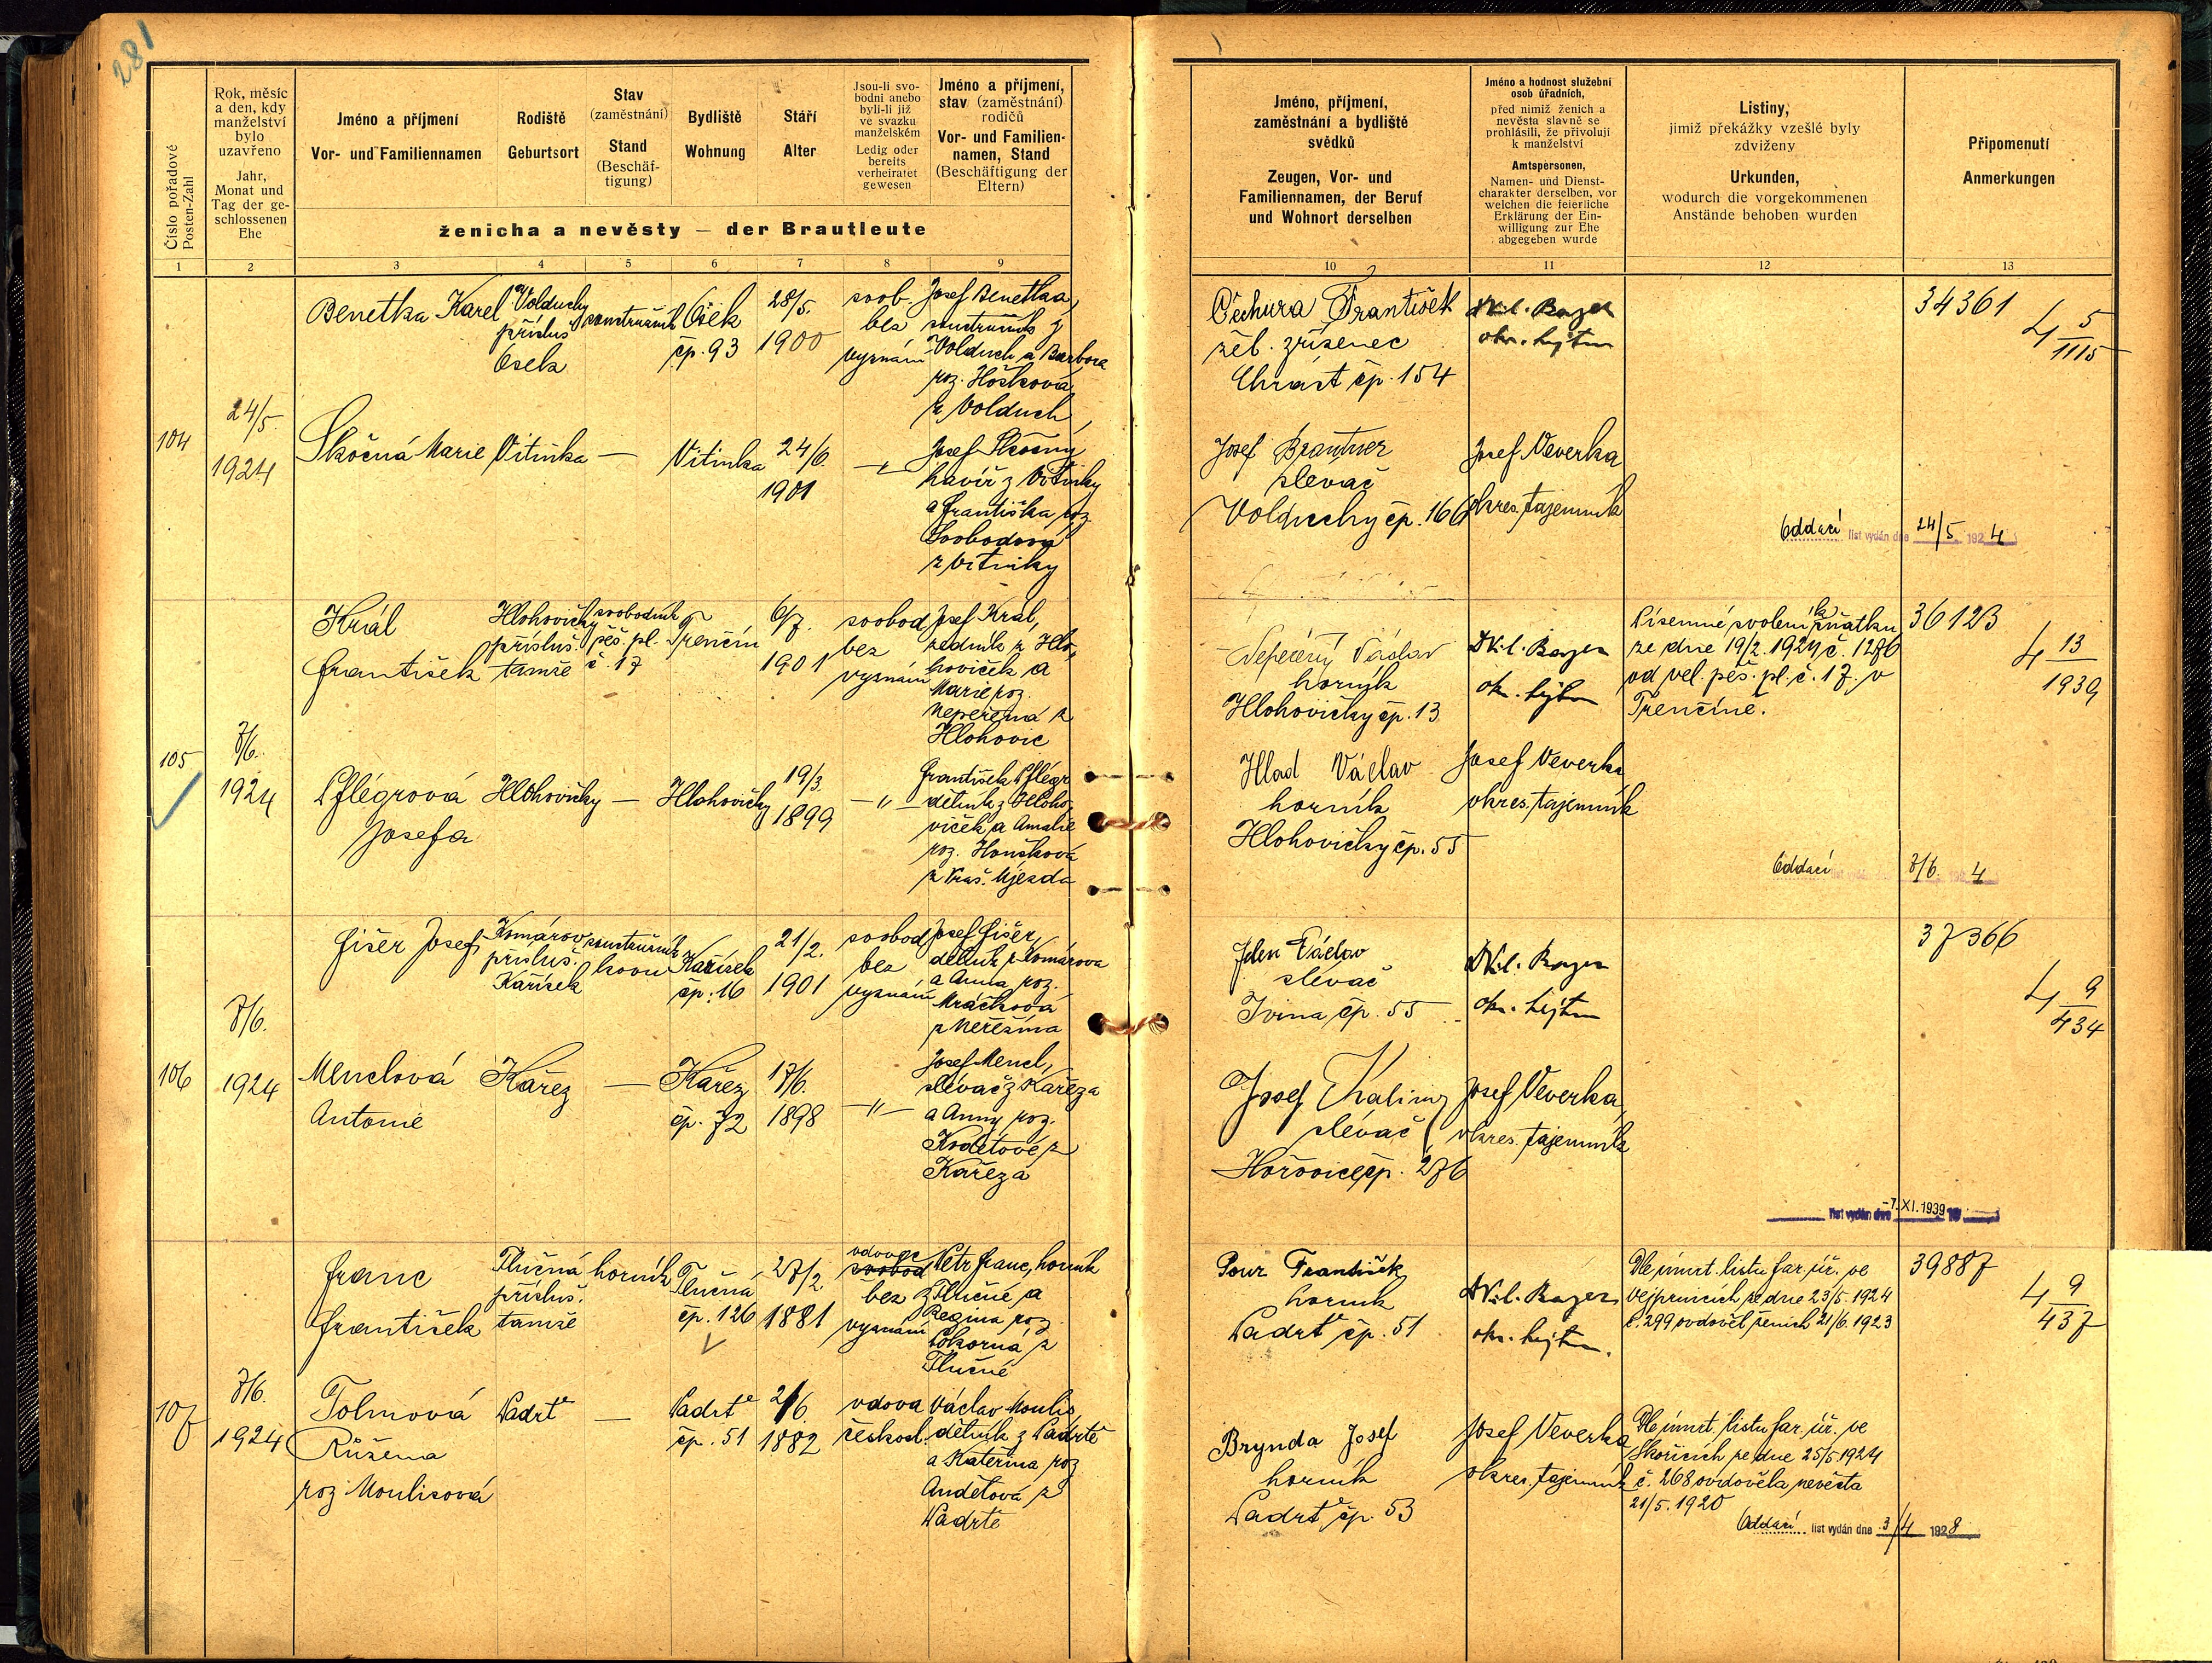 281
Číslo pořadové
Posten-Zahl
Rok, měsíc
a den, kdy
manželství
bylo
uzavřeno
Jahr,
Monat und
Tag der ge-
schlossenen
Ehe
Jméno a příjmení
Vor- und Familiennamen
Rodiště
Geburtsort
Stav
(zaměstnání)
Stand
(Beschäf-
tigung)
Bydliště
Wohnung
Stáří
Alter
Jsou-li svo-
bodni anebo
byli-li již
ve svazku
manželském
Ledig oder
bereits
verheiratet
gewesen
Jméno a příjmení,
stav (zaměstnání)
rodičů
Vor- und Familien-
namen, Stand
(Beschäftigung der
Eltern)
ženicha a nevěsty — der Brautleute
1 2 3 4 5 6 7 8 9
104
24/5.
1924
Benetka Karel
Volduchy
přísluš.
Osek
soustružník
Osek
čp. 93
28/5.
1900
svob.
bez
vyznání
Josef Benetka,
soustružník z
Volduch a Barbora
roz. Hošková
z Volduch
Skočná Marie
Vitinka
—
Vitinka
24/6.
1901
—"—
Josef Skočný
havíř z Vitinky
a Františka roz.
Svobodová
z Vitinky
105
7/6.
1924
Král
František
Hlohovičky
přísluš.
tamže
svobodník
pěš. pl.
č. 17
Trenčín
6/7.
1901
svobod
bez
vyznání
Josef Král,
zedník z Hlo-
hoviček a
Marie roz.
Nepeřená z
Hlohovic
Pflégrová
Josefa
Hlohovičky
—
Hlohovičky
19/3.
1899
—"—
František Pflégr
dělník z Hloho-
viček a Amalie
roz. Houšková
z Kraš. Újezda
106
7/6.
1924
Fišer Josef
Komárov
přísluš.
Kařísek
soustružník
kovu
Kařísek
čp. 16
21/2.
1901
svobod
bez
vyznání
Josef Fišer,
dělník z Komárova
a Anna roz.
Mráčková
z Neřežína
Menclová
Antonie
Kařez
—
Kařez
čp. 72
17/6.
1898
—"—
Josef Mencl,
slévač z Kařeza
a Anny roz.
Kodetové z
Kařeza
107
7/6.
1924
Franc
František
Tlučná
přísluš.
tamže
horník
Tlučná
čp. 126
27/2
1881
vdovec
svobod
bez
vyznání
Petr Franc, horník
z Tlučné a
Regina roz.
Pokorná z
Tlučné
Tolmová
Růžena
roz Moulisová
Padrť
—
Padrť
čp. 51
2/6
1882
vdova
českosl.
Václav Moulis
dělník z Padrtě
a Kateřina roz
Andětová z
Padrtě
Jméno, příjmení,
zaměstnání a bydliště
svědků
Zeugen, Vor- und
Familiennamen, der Beruf
und Wohnort derselben
Jméno a hodnost služební
osob úřadních,
před nimiž ženich a
nevěsta slavně se
prohlásili, že přivolují
k manželství
Amtspersonen,
Namen- und Dienst-
charakter derselben, vor
welchen die feierliche
Erklärung der Ein-
willigung zur Ehe
abgegeben wurde
Listiny,
jimiž překážky vzešlé byly
zdviženy
Urkunden,
wodurch die vorgekommenen
Anstände behoben wurden
Připomenutí
Anmerkungen
10 11 12 13
Čechura František
žel. zřízenec
Chrást čp. 154
okr. hejtm
34361
4 5/1115
Josef Brantner
slevač
Volduchy čp. 166
Josef Veverka
okres. tajemník
Oddací list vydán dne 24/5 1924
Nepeřený Václav
horník
Hlohovičky čp. 13
okr. hejtm
Písemné svolení k sňatku
ze dne 19/2. 1924 č. 1276
od vel. pěš. pl. č. 17. v
Trenčíně.
36123
4 13/1939
Hlad Václav
horník
Hlohovičky čp. 55
Josef Veverka
okres. tajemník
Oddací list vydán dne 7/6. 1924
Václav
slévač
Ivina čp. 55
okr. hejtm
37366
4 9/434
Josef Kalina
slévač
Hořovice čp. 276
Josef Veverka,
okres. tajemník
list vydán dne -7. XI. 1939
Pour František
horník
Padrť čp. 51
okr. hejtm.
Dle úmrt. listu far. úř. ve
Vejprnicích ze dne 23/5. 1924
č. 299 ovdověl ženich 21/6. 1923
39887
4 9/437
Brynda Josef
horník
Padrť čp. 53
Josef Veverka
okres. tajemník
Dle úmrt. listu far. úř. ve
Skořicích ze dne 25/5 1924
č. 268 ovdověla nevěsta
21/5. 1920
Oddací list vydán dne 3/4 1928